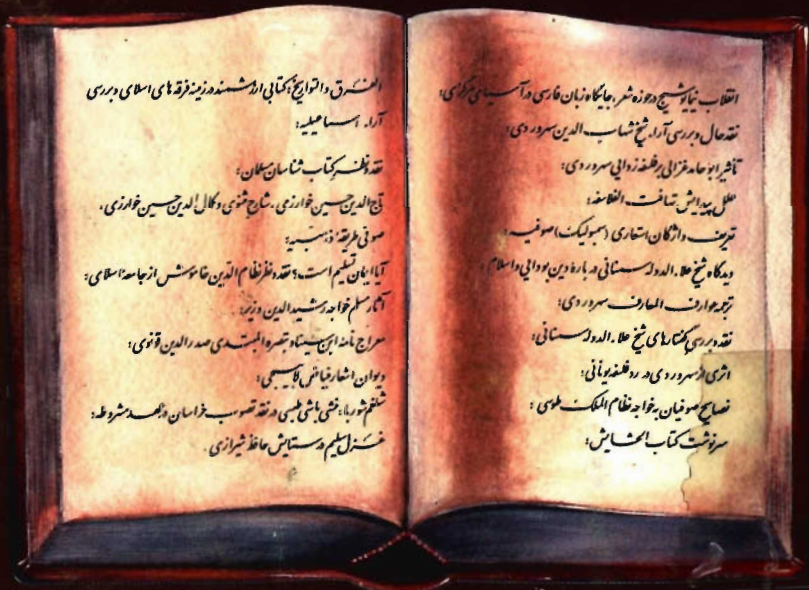 انقلاب نیمایوشیج در حوزه شعر، جایگاه زبان فارسی در آسیای مرکزی؛
نقد حال و بررسی آراء شیخ شهاب الدین سهروردی؛
تأثیر ابوحامد غزالی بر فلسفه زدایی سهروردی؛
علل پیدایش تهافت الفلاسفه؛
تعریف واژگان استعاری (سمبولیک) صوفیه؛
دیدگاه شیخ علاءالدوله سمنانی درباره دین بودایی و اسلام؛
ترجمه عوارف المعارف سهروردی؛
نقد و بررسی گفتارهای شیخ علاءالدوله سمنانی؛
اثری از سهروردی در رد فلسفه یونانی؛
نصایح صوفیان به خواجه نظام الملک طوسی؛
سرنوشت کتاب الحشایش؛
الفرق و التواریخ؛ کتابی ارزشمند در زمینه فرقه های اسلامی و بررسی
آراء اسماعیلیه؛
نقد و نظر کتاب شناسان مسلمان؛
تاج الدین حسین خوارزمی، شارح مثنوی و کمال الدین حسین خوارزمی،
صوفی طریقه ذهبیه؛
آیا ایمان تسلیم است؟ نقد و نظر نظام الدین خاموش از جامعه اسلامی؛
آثار مسلم خواجه رشیدالدین وزیر؛
معراج نامه ابن سینا و تبصرة المبتدی صدرالدین قونوی؛
دیوان اشعار فیاض لاهیجی؛
شلغم شوربا؛ منشی باشی طبسی در نقد تصوب خراسان در عهد مشروطه؛
غزل سلیم در ستایش حافظ شیرازی.